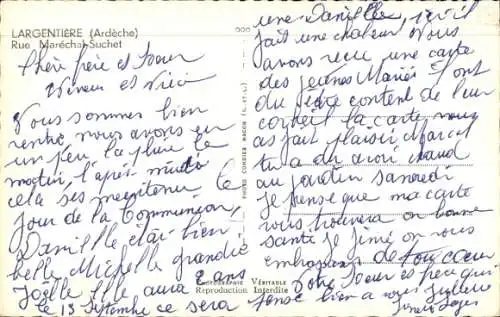 LARGENTIÈRE (Ardèche)
Rue Maréchal-Suchet
Chère frère et Soeur
Neveux et Nièce
Nous sommes bien
rentré nous avons eu
un peu la pluie le
matin, l'après midi
cela ses maintenu le
jour de la Communion,
Danielle était bien
belle Michelle grandie
Joëlle elle aura 2 ans
le 13 Septembre ce sera
une Danielle
fait une chaleur Nous
avons reçu une carte
des jeunes Mariés
du être content de leur
la carte nous
as fait plaisir Marcel
tu a du avoir chaud
au jardin samedi
je pense que ma carte
vous trouvera en bonne
santé Je finie on vous
embrassons de tout coeur
Votre Soeur et
pense bien a vous
PHOTOGRAPHIE VÉRITABLE
Reproduction Interdite
COMBIER MACON